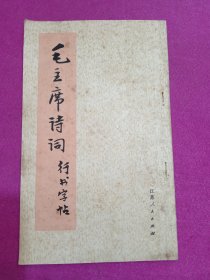 毛主席诗词
行书字帖
江苏人民出版